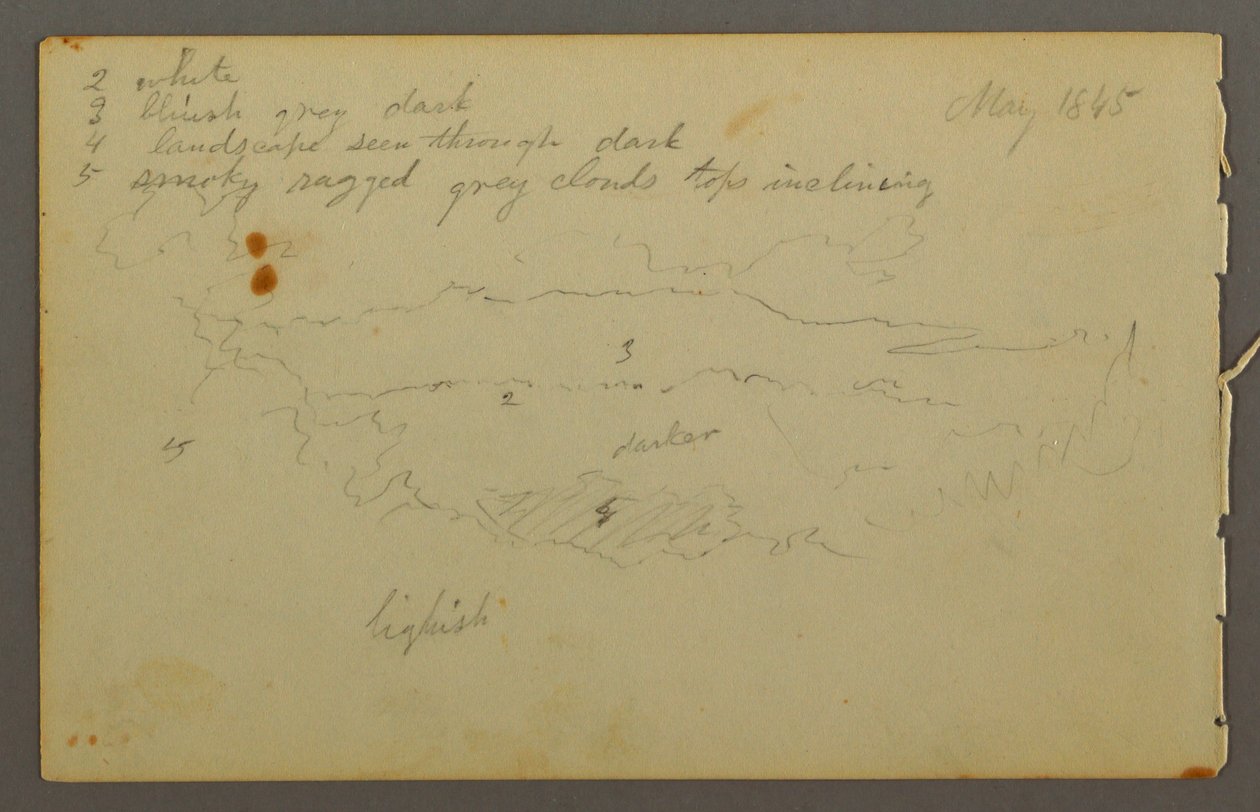 2 white
May 1845
3 bluish grey dark
4 landscape seen through dark
5 smoky ragged grey clouds tops inclining
3
2
5
darker
4
lighish